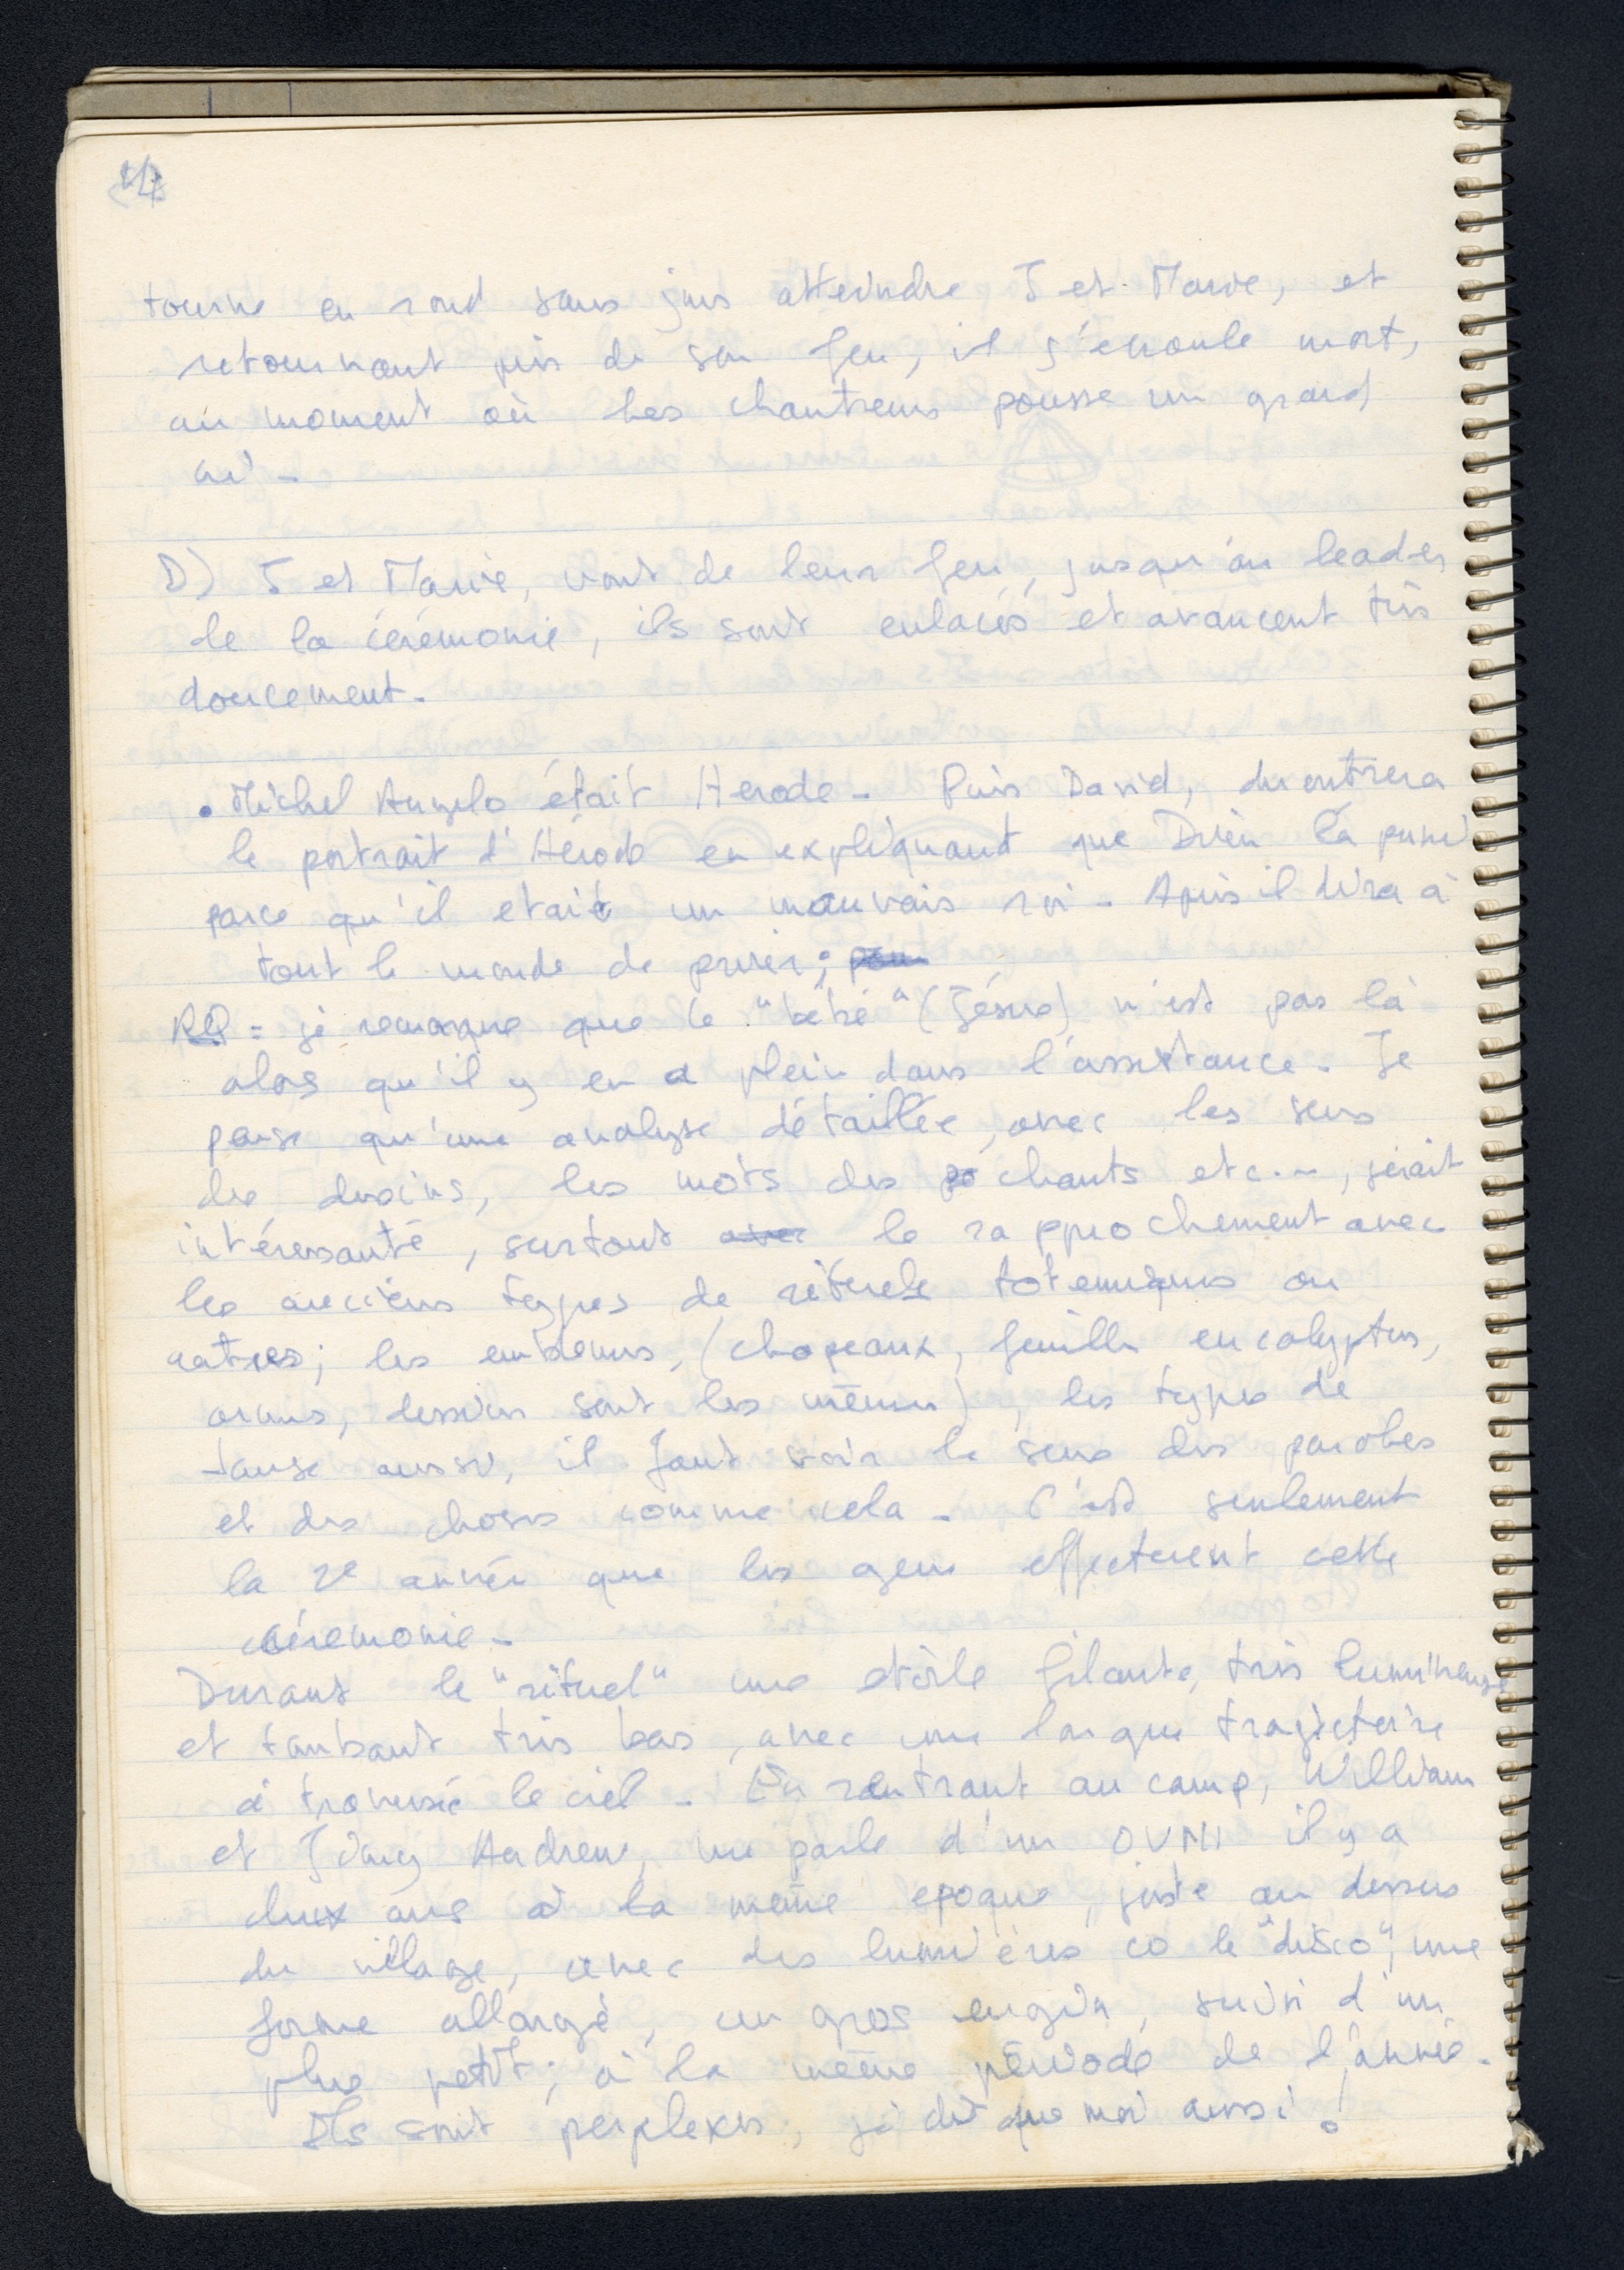 tourne en rond sans jms atteindre J et Marie, et
retournant près de son feu, il s'écroule mort,
au moment où les chanteurs pousse un grand
cri -
D) J et Marie, vont de leur feu, jusqu'au leader
de la cérémonie, ils sont enlacés et avancent très
doucement.
. Michel Angelo était Herode - Puis David, montrera
le portrait d'Hérode en expliquant que Dieu l'a puni
parce qu'il etait un mauvais roi - Après il dira à
tout le monde de prier;
RQ = je remarque que le "bébé" (Jésus) n'est pas là
alors qu'il y en a plein dans l'assistance. Je
pense qu'une analyse détaillée, avec les sens
des dessins, les mots des chants etc..., serait
intéressante, surtout le rapprochement avec
les anciens types de rituels totemiques ou
autres; les emblemes, (chapeaux, feuille eucalyptus,
dessins sont les mêmes), les types de
danse aussi, il faut voir le sens des paroles
et des choses comme cela - C'est seulement
la 2e année que les gens effectuent cette
cérémonie -
Durant le "rituel" une etoile filante, très lumineuse
et tombant très bas, avec une longue trajectoire
à traversé le ciel - En rentrant au camp, William
et Jimy Andrew, me parle d'un OVNI il y a
deux ans à la même epoque, juste au dessus
du village, avec des lumières co le "disco", une
forme allongé, un gros engin, suivi d'un
plus petit; à la même période de l'année.
Ils sont perplexes, je dit que moi aussi!